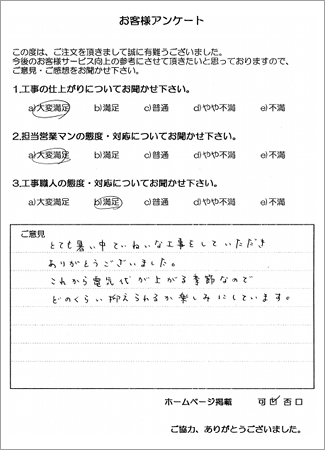 お客様アンケート
この度は、ご注文を頂きまして誠に有難うございました。
今後のお客様サービス向上の参考にさせて頂きたいと思っておりますので、
ご意見・ご感想をお聞かせ下さい。
1.工事の仕上がりについてお聞かせ下さい。
a)大変満足 b)満足 c)普通 d)やや不満 e)不満
2.担当営業マンの態度・対応についてお聞かせ下さい。
a)大変満足 b)満足 c)普通 d)やや不満 e)不満
3.工事職人の態度・対応についてお聞かせ下さい。
a)大変満足 b)満足 c)普通 d)やや不満 e)不満
ご意見
とても暑い中ていねいな工事をしていただき
ありがとうございました。
これから電気代が上がる季節なので
どのくらい抑えられるか楽しみにしています。
ホームページ掲載 可☑ 否□
ご協力、ありがとうございました。